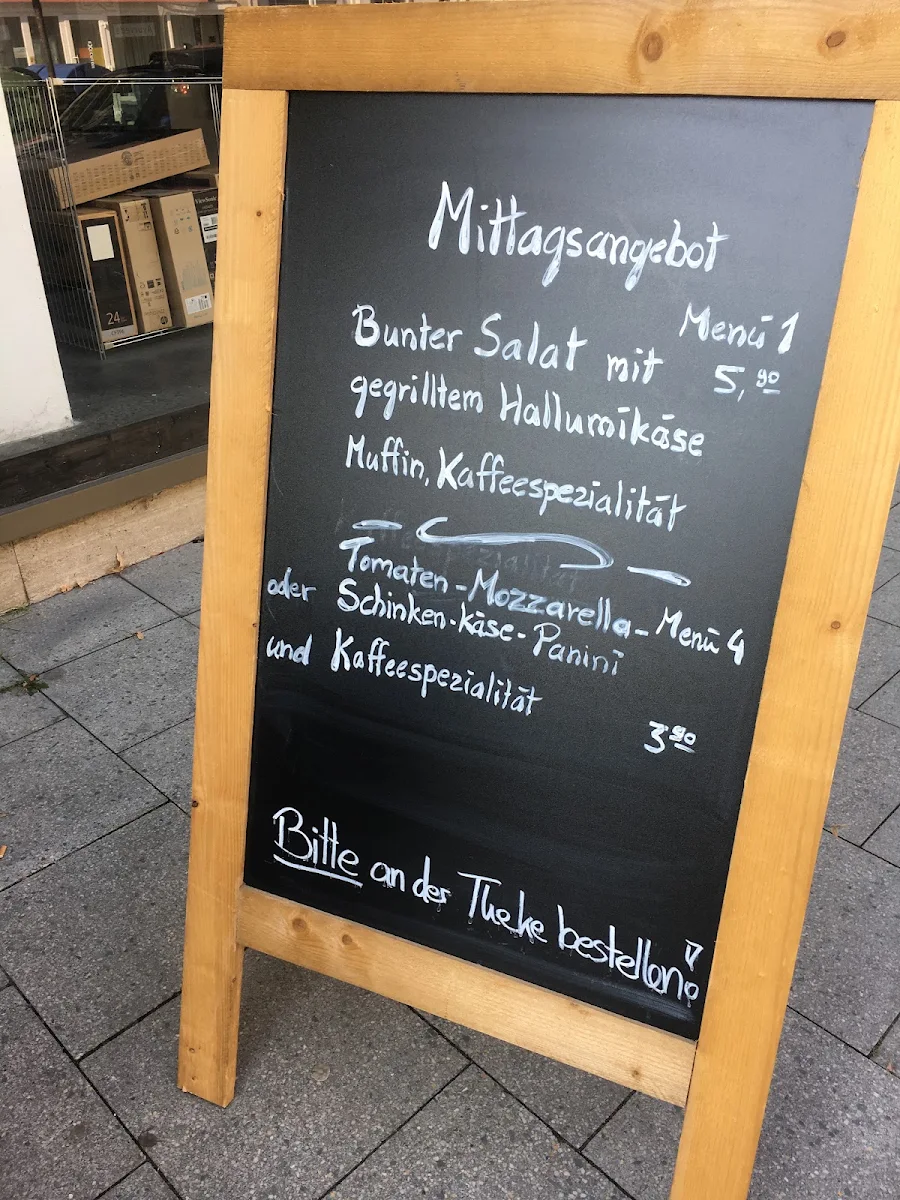 Mittagsangebot
Menü 1
Bunter Salat mit 5,90
gegrilltem Hallumikäse
Muffin, Kaffeespezialität
Tomaten-Mozzarella- Menü 4
oder Schinken-Käse-Panini
und Kaffeespezialität
3,90
Bitte an der Theke bestellen!
ViewSonic
24